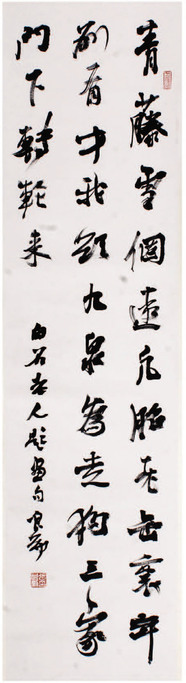 青藤雪個遠凡胎老缶衰年
別有才我欲九泉為走狗三家
門下轉輪来
白石老人題畫句